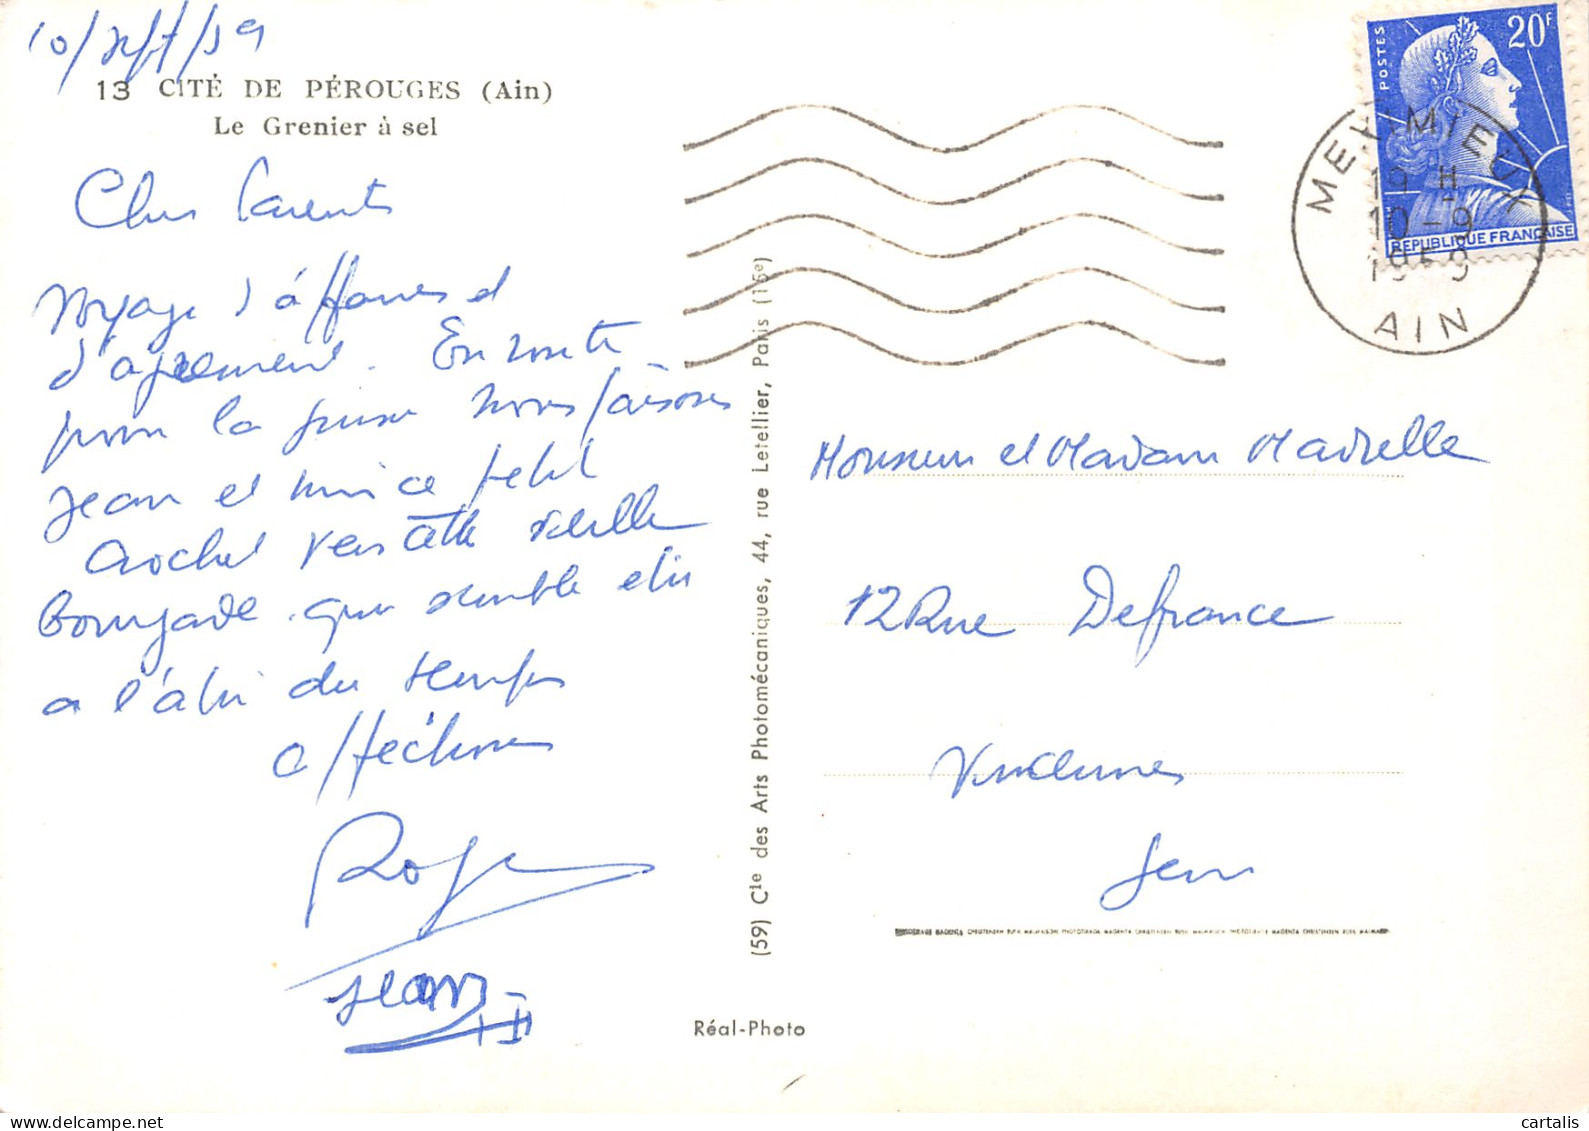 10/Sept/59
13 CITÉ DE PÉROUGES (Ain)
Le Grenier à sel
Chers Parents
Voyage d'affaires et
d'agrément. En route
pour la Suisse nous faisons
Jean et moi ce petit
crochet vers cette vieille
bourgade qui semble être
a l'abri du temps
affections
Roger
Jean
(59) Cie des Arts Photomécaniques, 44, rue Letellier, Paris (15e)
Réal-Photo
POSTES
20F
REPUBLIQUE FRANÇAISE
MEXIMIEUX
19 H
10-9
1959
AIN
Monsieur et Madame
12 Rue Defrance
Vincennes
Seine
cartalis